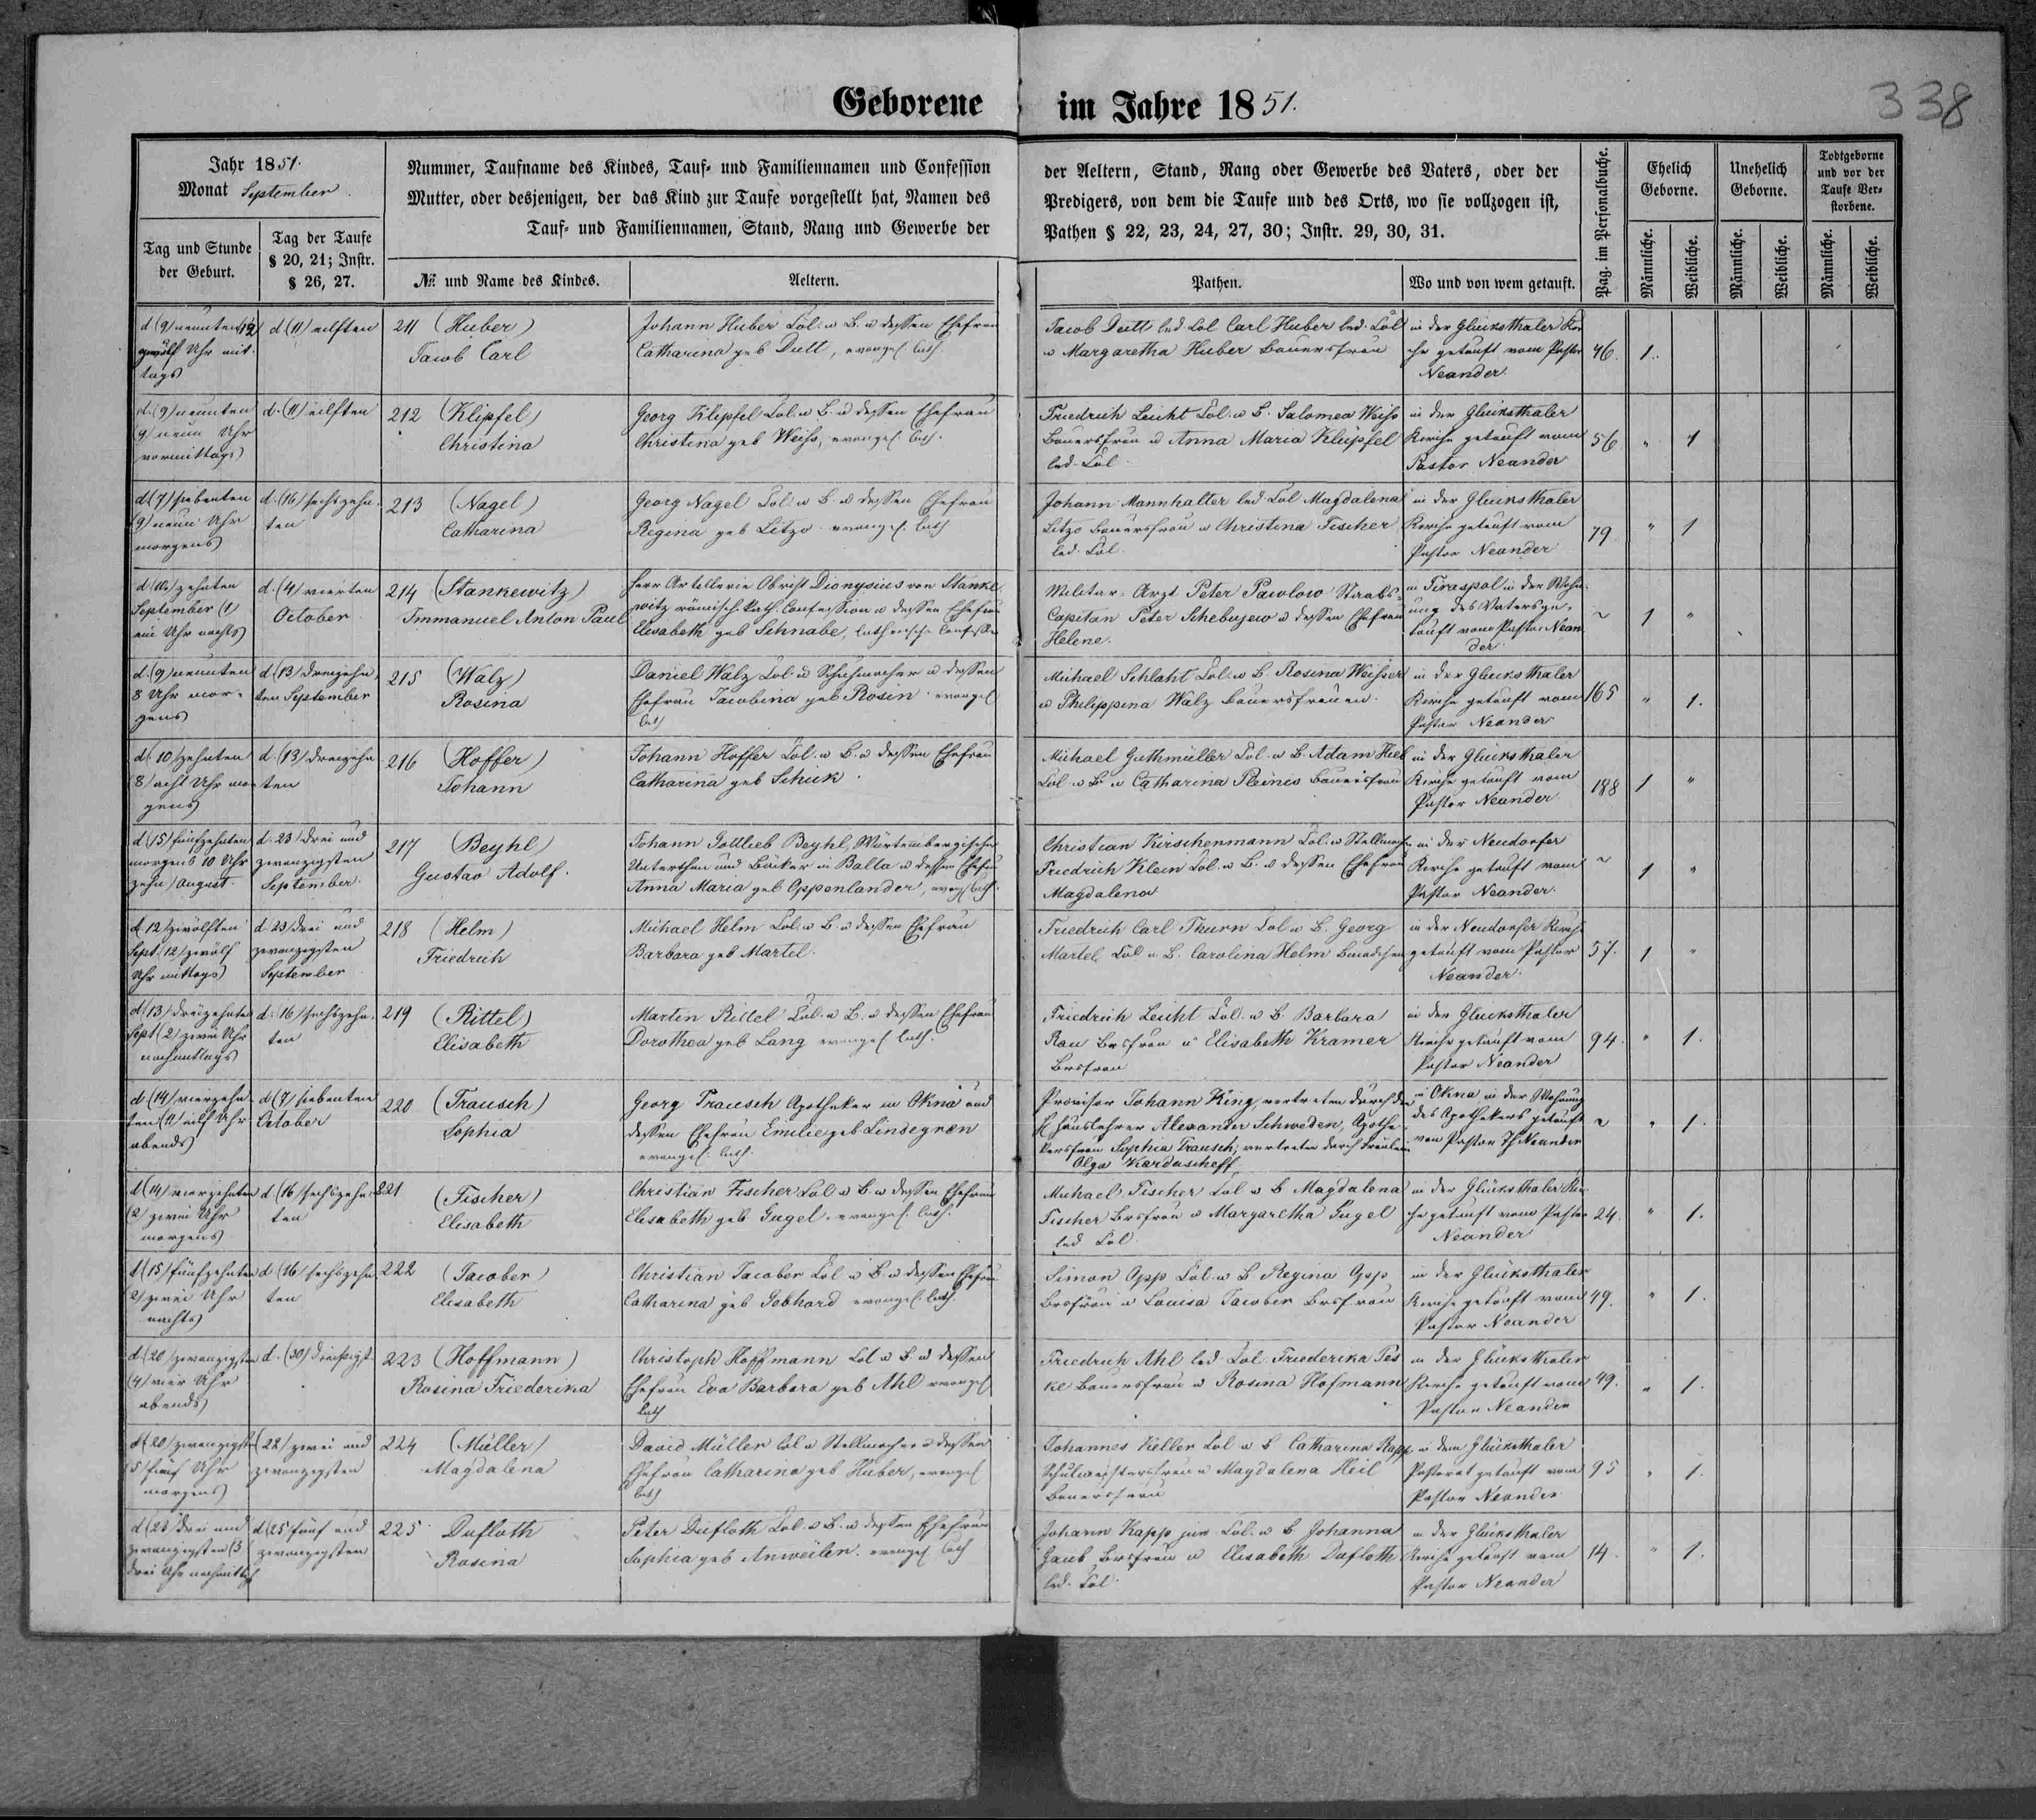 338
Geborene im Jahre 1851.
Jahr 1851.
Monat September.
Nummer, Taufname des Kindes, Tauf- und Familiennamen und Confession
Mutter, oder desjenigen, der das Kind zur Taufe vorgestellt hat, Namen des
Tauf- und Familiennamen, Stand, Rang und Gewerbe der
der Aeltern, Stand, Rang oder Gewerbe des Vaters, oder der
Predigers, von dem die Taufe und des Orts, wo sie vollzogen ist,
Pathen § 22, 23, 24, 27, 30; Instr. 29, 30, 31.
Tag und Stunde
der Geburt.
Tag der Taufe
§ 20, 21; Instr.
§ 26, 27.
№ und Name des Kindes.
Aeltern.
Pathen.
Wo und von wem getauft.
Pag. im Personalbuche.
Ehelich
Geborne.
Unehelich
Geborne.
Todtgeborne
und vor der
Taufe Ver-
storbene.
Männliche.
Weibliche.
Männliche.
Weibliche.
Männliche.
Weibliche.
d (9) neunten (12)
zwölf Uhr mit-
tags
d (11) eilften
211 (Huber)
Jacob Carl
Johann Huber Col. u B. u dessen Ehefrau
Catharina geb Dutt, evangel. luth.
Jacob Dutt led Col Carl Huber led. Col
u Margaretha Huber Bauersfrau
in der Glücksthaler Kir
che getauft vom Pastor
Neander
46. 1.
d. (9) neunten
(9) neun Uhr
vormittags
d. (11) eilften
212 (Klipfel)
Christina
Georg Klipfel Col. u B. u dessen Ehefrau
Christina geb Weiss, evangel. luth.
Friedrich Leicht Col. u B. Salomea Weiss
Bauersfrau u Anna Maria Klipfel
led. Col.
in der Glücksthaler
Kirche getauft vom
Pastor Neander
56 " 1
d (7) siebenten
(9) neun Uhr
morgens
d. (16) sechszehn-
ten
213 (Nagel)
Catharina
Georg Nagel Col. u B. u dessen Ehefrau
Regina geb Litzo evangel. luth
Johann Mannhalter led Col Magdalena
Litzo Bauersfrau u Christina Fischer
led. Col.
in der Glücksthaler
Kirche getauft vom
Pastor Neander
79. " 1
d (10) zehnten
September (1)
ein Uhr nachts
d. (4) vierten
October
214 (Stankewitz)
Immanuel Anton Paul
Herr Artillerie Obrist Dionysius von Stanke
witz römisch. kath. Confession u dessen Ehefrau
Elisabeth geb Schnabe, lutherische Confession
Militar-Arzt Peter Pawlow Staabs-
Capitan Peter Schebujew u dessen Ehefrau
Helene.
in Tiraspol in der Wohn-
ung des Vaters ge-
tauft vom Pastor Nean
der
~ 1 "
d. (9) neunten
8 Uhr mor-
gens
d (13) dreizehn
ten September
215 (Walz)
Rosina
Daniel Walz Col u Schuhmacher u dessen
Ehefrau Jacobina geb Rosin evangel
luth
Michael Schlaht Col. u B. Rosina Weisser
u Philippina Walz Bauersfrauen.
in der Glücksthaler
Kirche getauft vom
Pastor Neander
165 " 1.
d. (10) zehnten
(8) acht Uhr mor
gens
d. (13) dreizehn
ten
216 (Hoffer)
Johann
Johann Hoffer Col. u B. u dessen Ehefrau
Catharina geb Schuk.
Michael Guthmüller Col. u B. Adam Hieb
Col. u B. u Catharina Pleinis Bauersfrau
in der Glücksthaler
Kirche getauft vom
Pastor Neander
188 1 "
d (15) fünfzehnten
morgens 10 Uhr
zehn) August.
d. 23 drei und
zwanzigsten
September
217 (Beyhl)
Gustav Adolf.
Johann Gottlieb Beyhl, Würtembergischer
Unterthan und Bäcker in Balta u dessen Ehefrau
Anna Maria geb Oppenlander, evangl luth.
Christian Kirschenmann Col. u Stellmacher
Friedrich Klein Col. u B. u dessen Ehefrau
Magdalena
in der Neudorfer
Kirche getauft vom
Pastor Neander.
~ 1 "
d. 12) zwölften
Sept. (12) zwölf
Uhr mittags
d. 23) drei und
zwanzigsten
September
218 (Helm)
Friedrich
Michael Helm Col. u B. u dessen Ehefrau
Barbara geb Martel.
Friedrich Carl Thurn Col u B. Georg
Martel Col u B. Carolina Helm
in der Neudorfer Kirche
getauft vom Pastor
Neander
57. 1 "
d (13) dreizehnten
Sept (2) zwei Uhr
nachmittags
d. (16) sechszehn-
ten
219 (Rittel)
Elisabeth
Martin Rittel Col. u B. u dessen Ehefrau
Dorothea geb Lang evangel luth.
Friedrich Leicht Col. u B. Barbara
Rau Brsfrau u Elisabeth Kramer
Brsfrau
in der Glücksthaler
Kirche getauft vom
Pastor Neander
94. " 1.
d (14) vierzehn
ten (11) eilf Uhr
abends
d (7) siebenten
October
220 (Trausch)
Sophia
Georg Trausch Apotheker in Okna und
dessen Ehefrau Emilie geb Lindegreen
evangel. luth.
Provisor Johann King, vertreten durch den
H Hauslehrer Alexander Schweden, Apothe-
kersfrau Sophia Trausch, vertreten durch Fräulein
Olga Kardascheff
in Okna in der Wohnung
des Apothekers getauft
von Pastor Th Neander
~ " 1.
d (14) vierzehnten
(2) zwei Uhr
morgens
d (16) sechszehn
ten
221 (Fischer)
Elisabeth
Christian Fischer Col u B. u dessen Ehefrau
Elisabeth geb Gugel. evangel. luth.
Michael Fischer Col u B Magdalena
Fischer Brsfrau u Margaretha Gugel
led Col
in der Glücksthaler Kir
che getauft vom Pastor
Neander
24. " 1.
d (15) fünfzehnten
(2) zwei Uhr
nachts
d (16) sechszehn
ten
222 (Jacober)
Elisabeth
Christian Jacober Col u B. u dessen Ehefrau
Catharina geb Gebhard evangel. luth.
Simon Opp Col. u B. Regina Opp
Brsfrau u Louisa Jacober Brsfrau
in der Glücksthaler
Kirche getauft vom
Pastor Neander
49. " 1.
d. (20) zwanzigsten
(4) vier Uhr
abends
d. (30) dreissigst
223 (Hoffmann)
Rosina Friederika
Christoph Hoffmann Col u B. u dessen
Ehefrau Eva Barbara geb Ahl evangel
luth
Friedrich Ahl led Col. Friederika Pes
ke Bauersfrau u Rosina Hofmann
in der Glücksthaler
Kirche getauft vom
Pastor Neander
49. " 1.
d (20) zwanzigsten
(5) fünf Uhr
morgens
(22) zwei und
zwanzigsten
224 (Müller)
Magdalena
David Müller Col u Stellmacher u dessen
Ehefrau Catharina geb Huber, evangel
luth
Johannes Keller Col u B Catharina Rapp
Schulmeistersfrau u Magdalena Heil
Bauersfrau
in dem Glücksthaler
Pastorat getauft vom
Pastor Neander
95 " 1.
d (23) drei und
zwanzigsten (3
drei Uhr nachmittag
d (25) fünf und
zwanzigsten
225 Dufloth
Rosina
Peter Dufloth Col. u B. u dessen Ehefrau
Sophia geb Anweiler. evangel luth
Johann Kapp jun Col. u B Johanna
Haub Brsfrau u Elisabeth Dufloth
led. Col.
in der Glücksthaler
Kirche getauft vom
Pastor Neander
14. " 1.